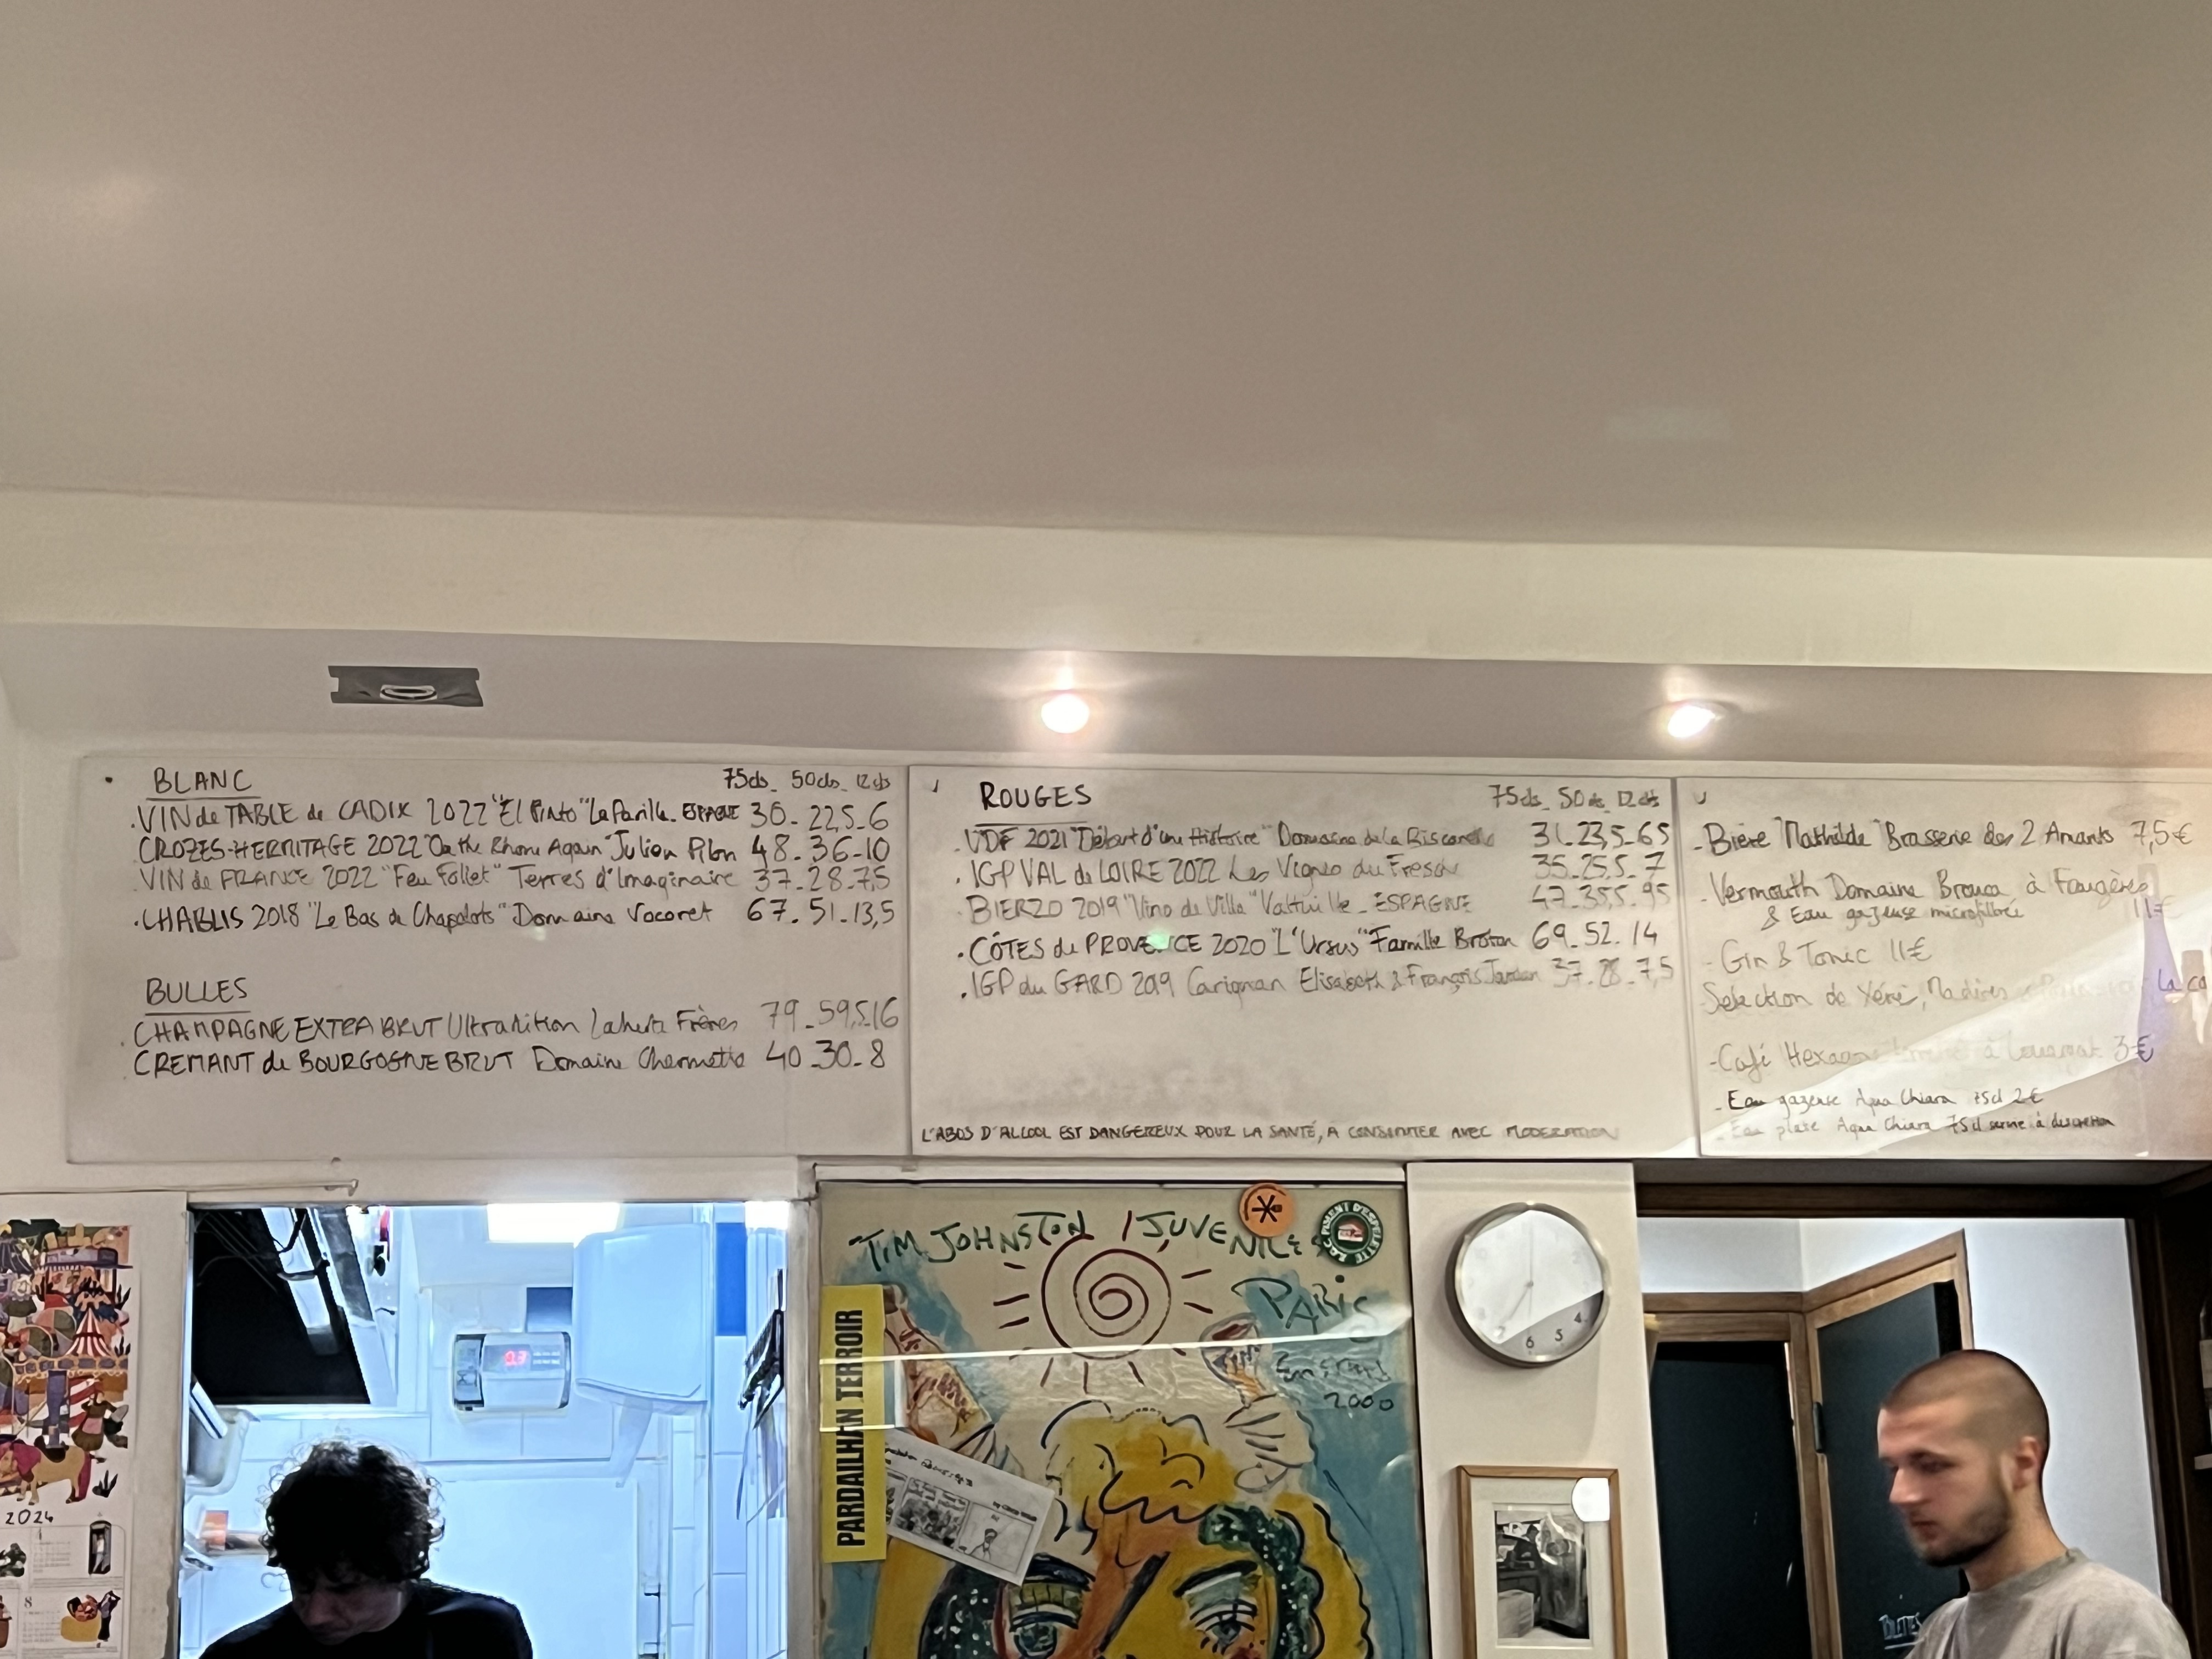 BLANC 75cls_ 50cls_ 12cls
. VIN de TABLE de CADIX 2022 "El Pinto" La Parilla_ ESPAGNE 30_ 22,5_6
CROZES-HERMITAGE 2022 "On the Rhone Again" Julien Pilon 48_36_10
VIN de FRANCE 2022 "Feu Follet" Terres d'Imaginaire 37_28_7,5
. CHABLIS 2018 "Le Bas de Chapelots" Domaine Vocoret 67_51_13,5
BULLES
. CHAMPAGNE EXTRA BRUT Ultradition Laherte Frères 79_59,5_16
CREMANT de BOURGOGNE BRUT Domaine Chermette 40_30_8
ROUGES 75cls_ 50cls_ 12cls
. VDF 2021 "Début d'une Histoire" Domaine de la Biscarelle 31_23,5_6,5
. IGP VAL de LOIRE 2022 Les Vignes du Fresche 35_25,5_7
. BIERZO 2019 "Vino de Villa" Valtuille_ ESPAGNE 47_35,5_9,5
. CÔTES de PROVENCE 2020 "L'Ursus" Famille 69_52_14
. IGP du GARD 2019 Carignan Elisabeth & François Jourdan 37_28_7,5
L'ABUS D'ALCOOL EST DANGEREUX POUR LA SANTÉ, A CONSOMMER AVEC MODERATION
- Bière "Mathilde" Brasserie des 2 Amants 7,5€
- Vermouth Domaine à Faugères
& Eau gazeuse microfiltrée 11€
- Gin & Tonic 11€
Selection de Xérè, Madères
- Café 3€
- Eau gazeuse Aqua Chiara 75cl 2€
- Eau plate Aqua Chiara 75cl servie à discretion
TIM JOHNSTON / JUVENILES
PARIS
2000
PIMENT D'ESPELETTE
PARDAILHAN TERROIR
2024
8
0.3
4
5
6
7
TOILETTES